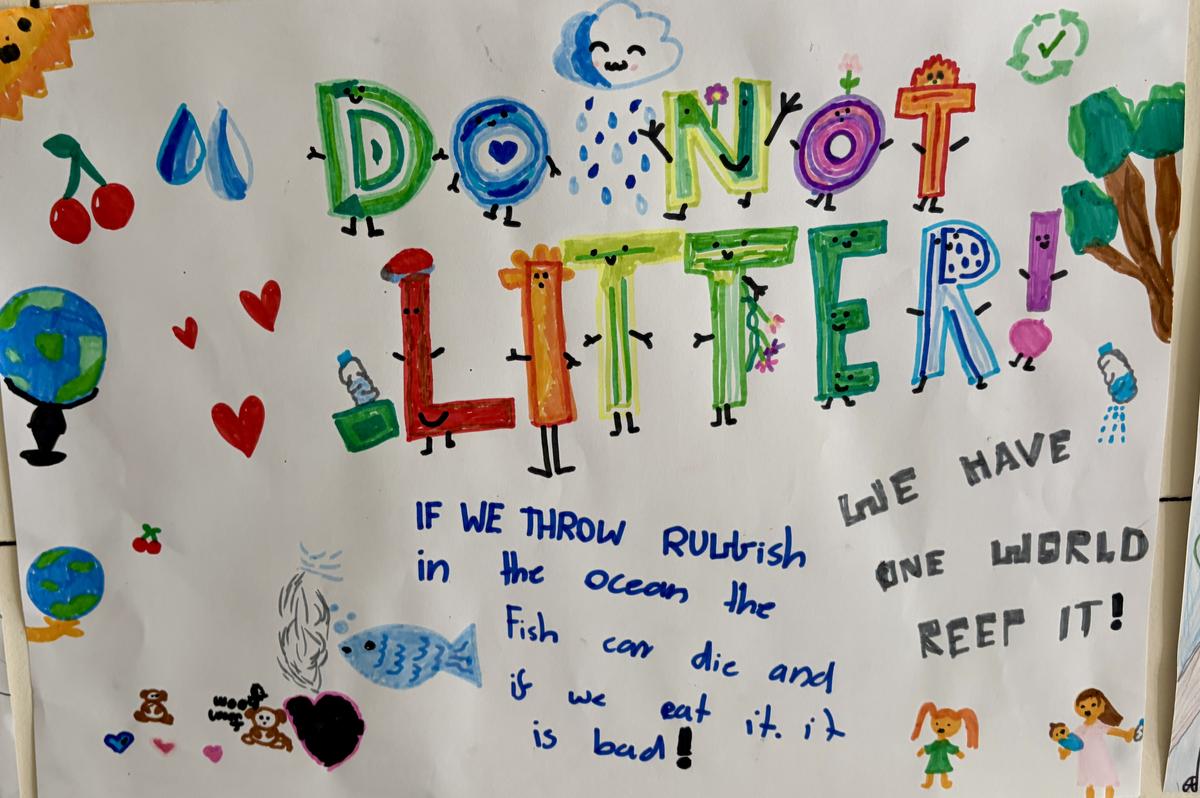 DO NOT
LITTER!
WE HAVE
ONE WORLD
KEEP IT!
IF WE THROW RUbbish
in the ocean the
Fish can die and
if we eat it. it
is bad!
woof